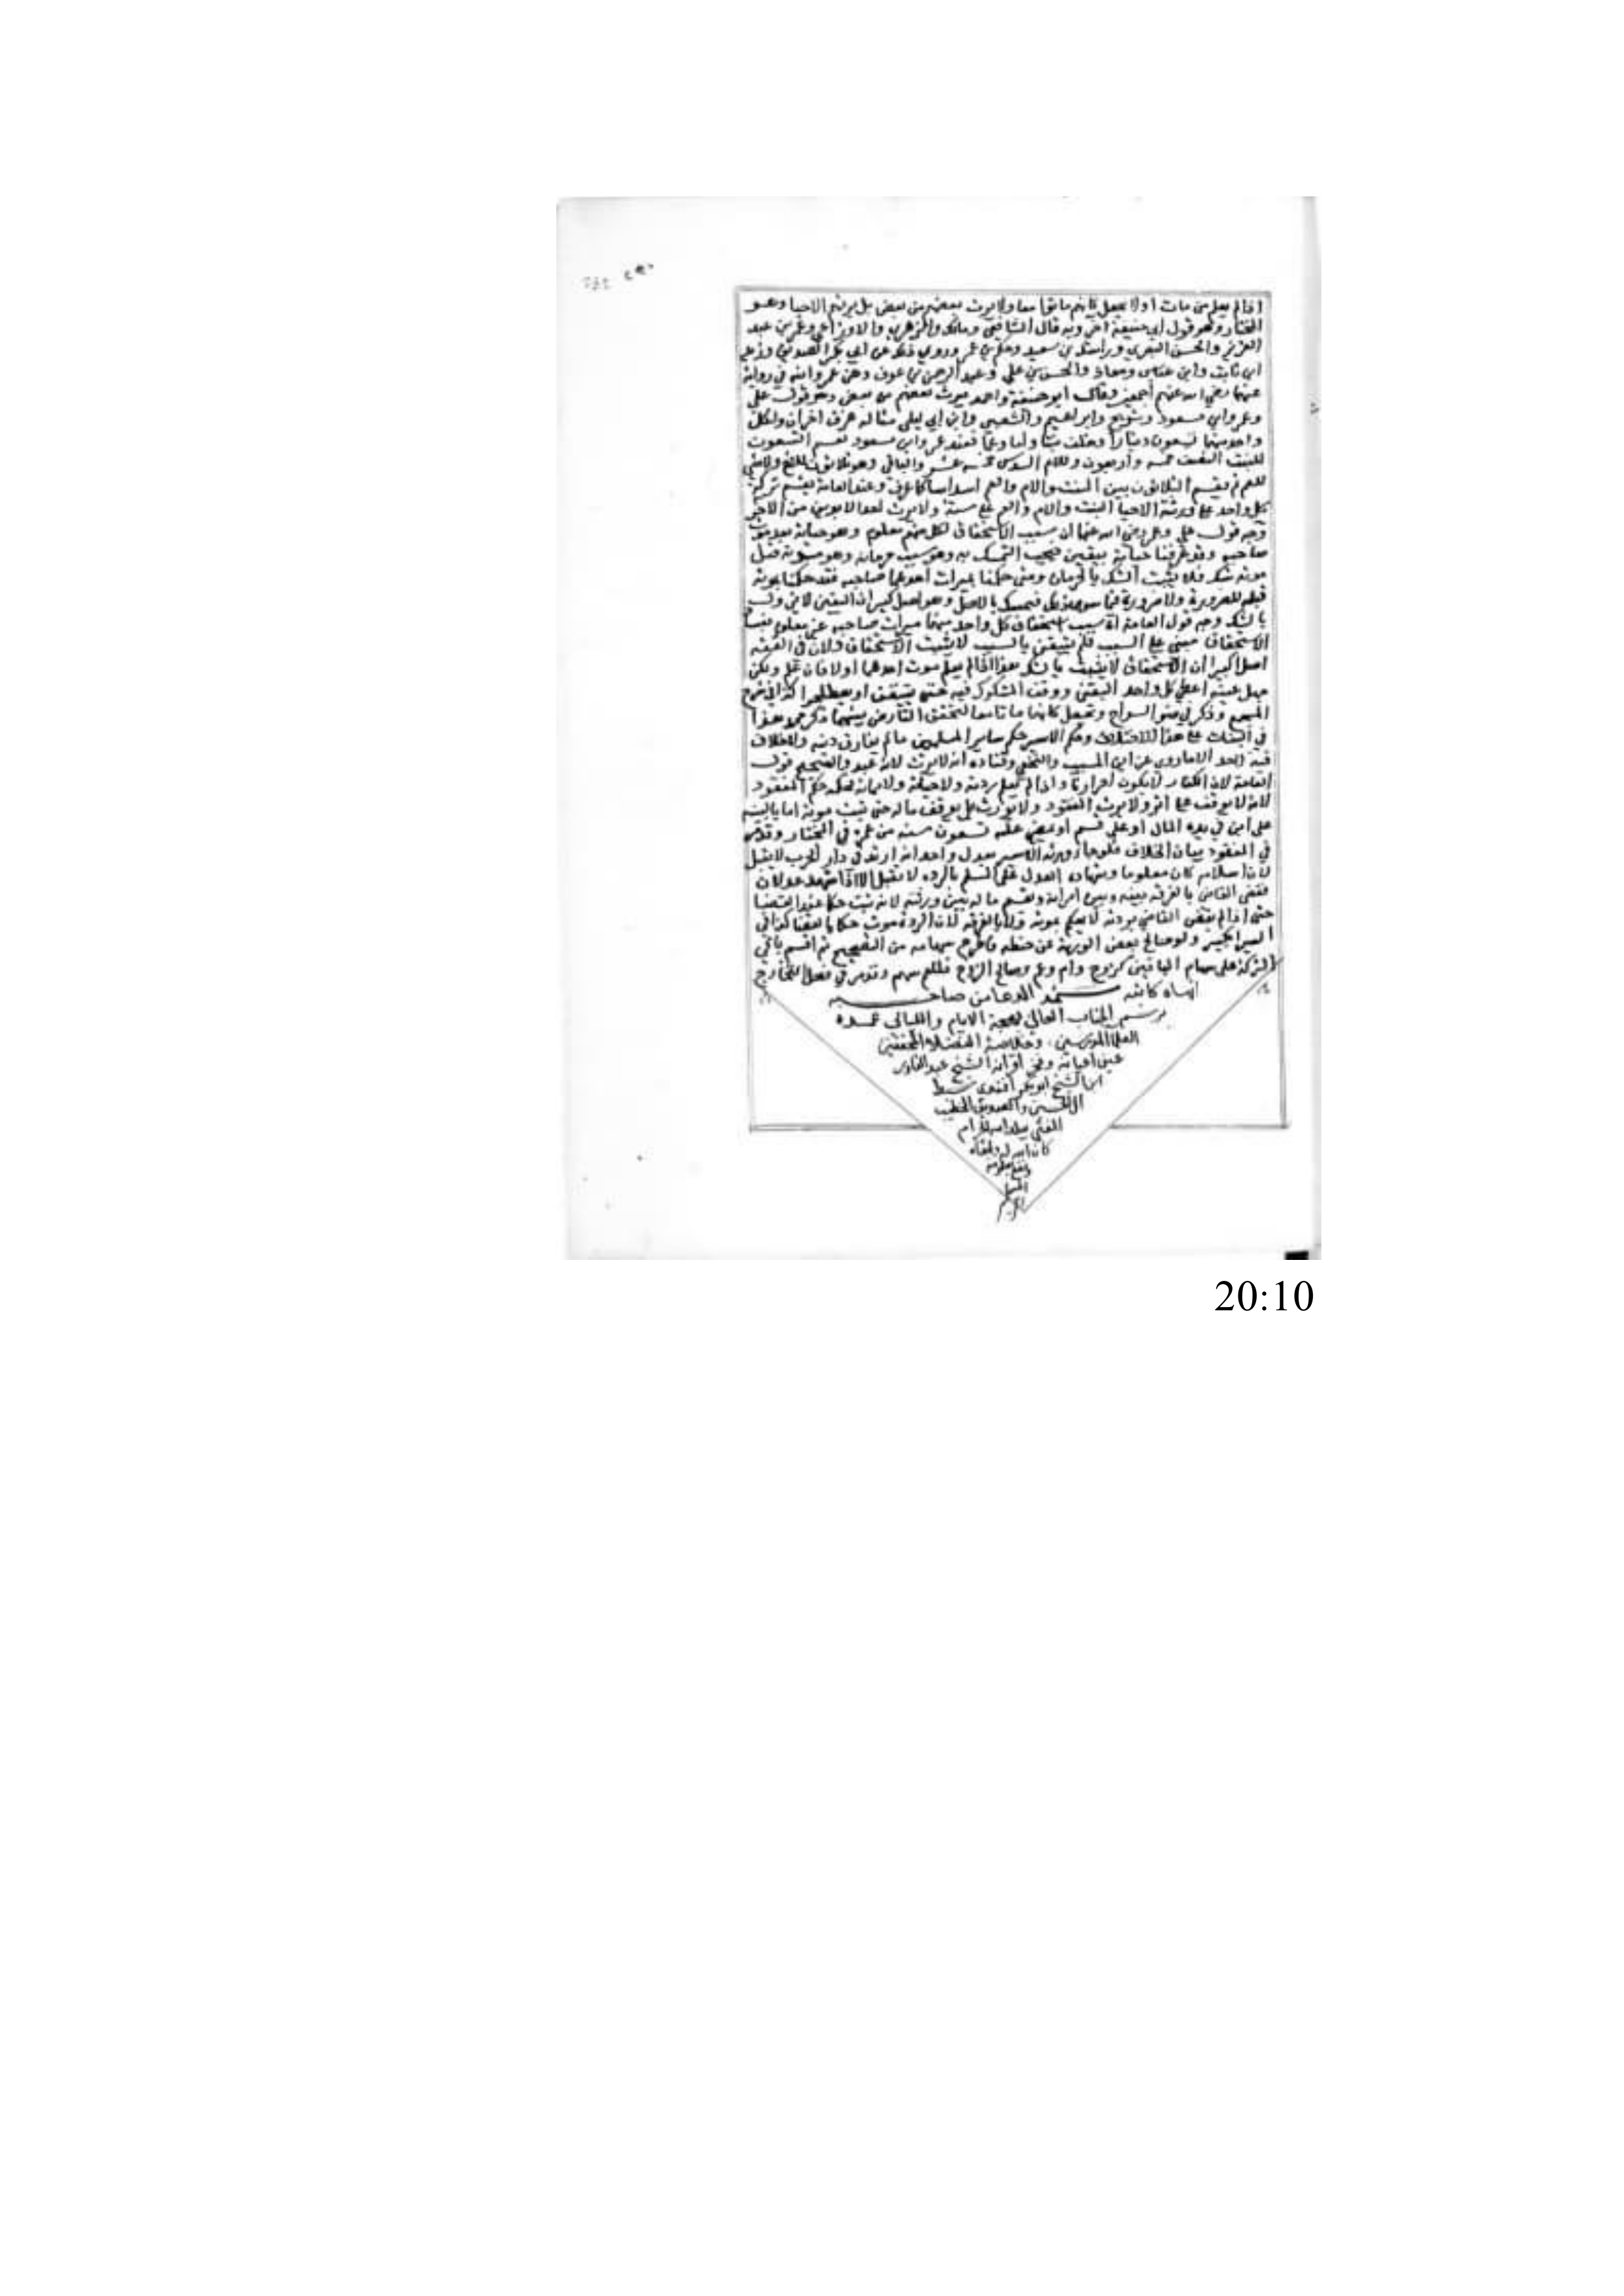 اذا لم يعلم من مات اولا يجعل كانهم ماتوا معا ولا يرث بعضهم من بعض بل يرثهم الاحيا وهو
المختار وهو قول ابي حنيفة اخرا وبه قال الشافعي ومالك والزهري والاوزاعي وعمر بن عبد
العزيز والحسن البصري وراشد بن سعيد وحكيم بن عمر وروي ذلك عن ابي بكر الصديق وزيد
ابن ثابت وابن عباس ومعاذ والحسن بن علي وعبد الرحمن بن عوف وعن عمر وابنه في رواية
عنهما رضي الله عنهم اجمعين وقال ابو حنيفة واحمد يرث بعضهم من بعض وهو قول علي
وعمر وابن مسعود وشريح وابراهيم والشعبي وابن ابي ليلى مثاله غرق اخوان ولكل
واحد منهما تسعون دينارا وخلف بنتا واما وعما فعند عمر وابن مسعود تقسم التسعون
للبنت النصف خمسة واربعون وللام السدس خمسة عشر والباقي وهو ثلاثون للاخ ولا شي
للعم ثم يقسم الثلاثون بين البنت والام والعم اسداسا كما عرف وعند العامة يقسم تركة
كل واحد على ورثة الاحيا البنت والام والعم على ستة ولا يرث احد الاخوين من الاخر
وجه قول علي وعمر رضي الله عنهما ان سبب الاستحقاق لكل منهم معلوم وهو حياته بعد موت
صاحبه وقد عرفنا حياته بيقين فيجب التمسك به وسبب حرمانه وهو موته قبل
موته شك فلا يثبت الشك بالحرمان ومتى حكمنا بميراث احدهما صاحبه فقد حكمنا بموته
قبله للضرورة ولا ضرورة فيما سوى ذلك فيتمسك بالاصل وهو اصل كبير ان اليقين لا يزول
بالشك وجه قول العامة ان سبب استحقاق كل واحد منهما ميراث صاحبه غير معلوم يقينا
الاستحقاق مبني على السبب فلم يتيقن بالسبب لا يثبت الاستحقاق ولان في الفقه
اصلا كبيرا ان الاستحقاق لا يثبت بالشك هذا اذا لم يعلم موت احدهما اولا فان علم ولكن
جهل عينه اعطي كل واحد اليقين ووقف المشكوك فيه حتى يتيقن او يصطلحوا كذا في شرح
المجمع وذكر في ضوء السراج ويجعل كانهما ماتا معا لتحقق التعارض بينهما ذكر محمد هذا
في وحكم الاسير حكم ساير المسلمين ما لم يفارق دينه ولا خلاف
فيه لاحد الا ما روي عن ابن المسيب والنخعي وقتادة انه لا يرث لانه عبد والصحيح قول
العامة لان الكفار لا يملكون احرارنا واذا لم تعلم ردته ولا حياته ولا مماته فحكمه حكم المفقود
لانه لا يوقف على اثر ولا يرث المفقود ولا يورث بل يوقف ماله حتى يثبت موته اما بالبينة
على من في يده المال او على قسم او يمضي عليه تسعون سنة من عمره في المختار وقد مر
في المفقود بيان الخلاف فلو جاء ورثة الاسير بعدل واحد انه ارتد في دار الحرب لا يقبل
لان اسلامه كان معلوما وشهادة العدل على المسلم بالردة لا تقبل الا اذا شهد عدلان
فقضى القاضي بالفرقة بينه وبين امراته وقسم ماله بين ورثته لانه ثبت حكما عند القضا
حتى اذا لم يقض القاضي بردته لا يحكم بموته ولا بالفرقة لان الردة موت حكما بالقضا كذا في
السير الكبير ولو صالح بعض الورثة عن حظه فاطرح سهامه من التصحيح ثم اقسم باقي
التركة على سهام الباقين كزوج وام وعم وصالح الزوج فللعم سهم وقد مر في فصل التخارج
انهاه كاتبه الدعا من صاحبه
برسم الجناب العالي بهجة الايام والليالي عمدة
العلما المدرسين وخلاصة الفضلا المحققين
عين اعيانه وفخر اقرانه الشيخ عبد القادر
ابن الشيخ ابو بكر افندي
والصديقي الخطيب
المفتي ببلد الله الحرام
كان الله له